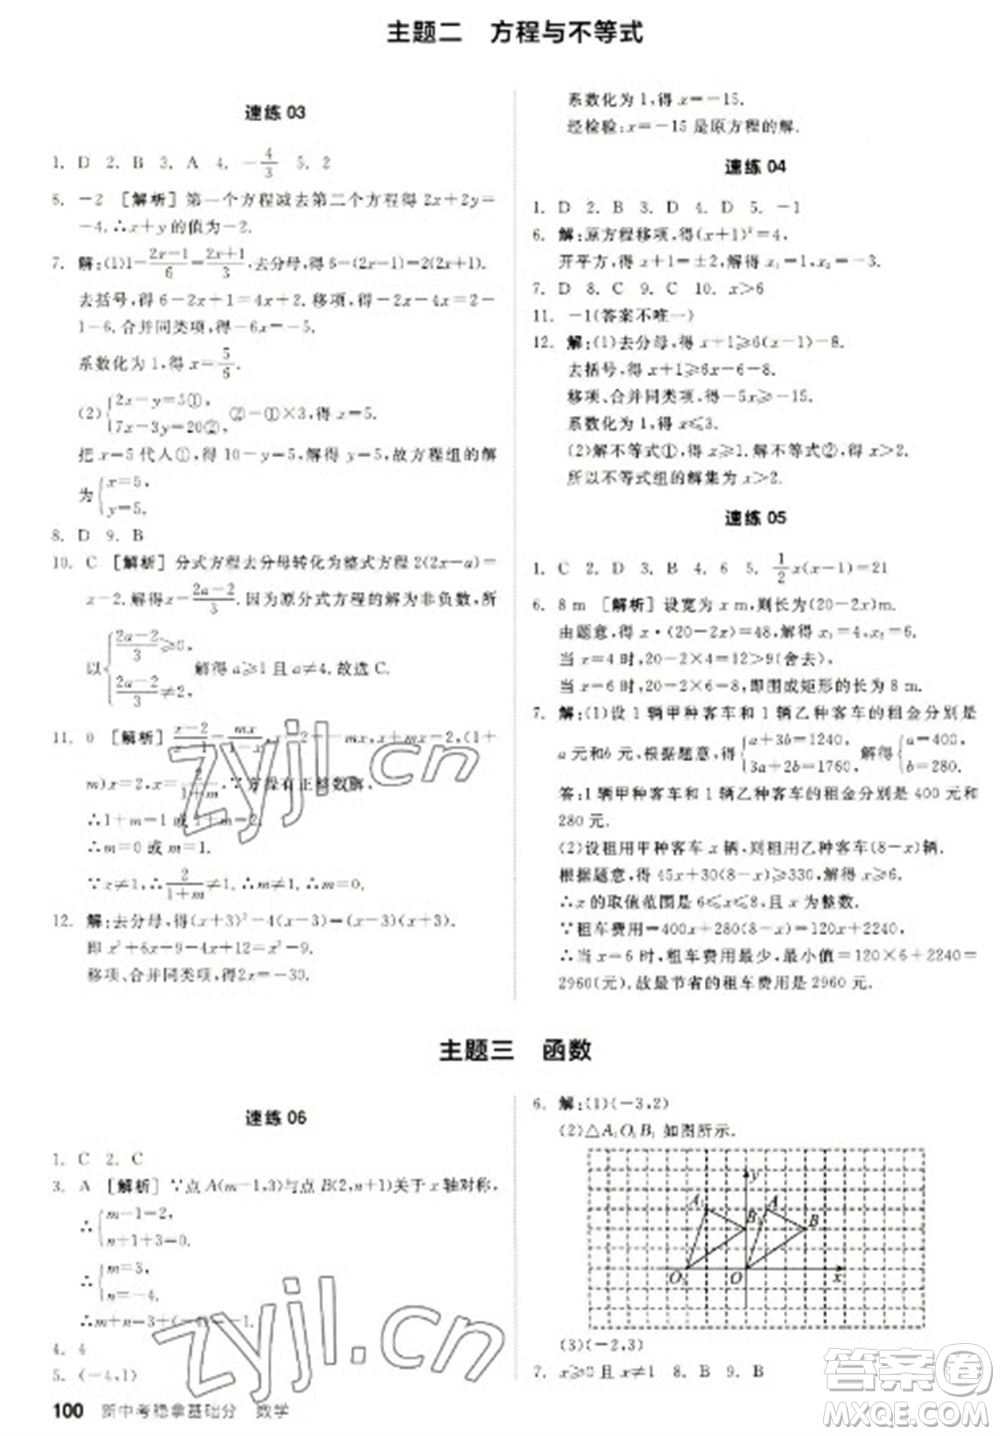 主题二 方程与不等式
速练 03
1. D 2. B 3. A 4. -4/3 5. 2
6. -2 [解析]第一个方程减去第二个方程得2x+2y=
-4.∴x+y的值为-2.
7. 解:(1)1-(2x-1)/6=(2x+1)/3,去分母,得6-(2x-1)=2(2x+1).
去括号,得6-2x+1=4x+2.移项,得-2x-4x=2-
1-6.合并同类项,得-6x=-5.
系数化为1,得x=5/6.
(2){2x-y=5①, 7x-3y=20②, ②-①×3,得x=5.
把x=5代人①,得10-y=5,解得y=5,故方程组的解
为{x=5, y=5.
8. D 9. B
10. C [解析]分式方程去分母转化为整式方程2(2x-a)=
x-2.解得x=(2a-2)/3.因为原分式方程的解为非负数,所
以{(2a-2)/3≥0, (2a-2)/3≠2, 解得a≥1且a≠4.故选C.
11. 0 [解析](x-2)/(x-1)=1-mx/(x-1),x-2=x-1-mx,x+mx-x=2-1,(1+
m)x=2,x=2/(1+m).∵方程有正整数解,
∴1+m=1或1+m=2.
∴m=0或m=1.
∵x≠1,∴2/(1+m)≠1.∴m≠1.∴m=0.
12. 解:去分母,得(x+3)²-4(x-3)=(x-3)(x+3).
即x²+6x+9-4x+12=x²-9.
移项、合并同类项,得2x=-30.
系数化为1,得x=-15.
经检验:x=-15是原方程的解.
速练 04
1. D 2. B 3. D 4. D 5. -1
6. 解:原方程移项,得(x+1)²=4,
开平方,得x+1=±2,解得x₁=1,x₂=-3.
7. D 8. C 9. C 10. x>6
11. -1(答案不唯一)
12. 解:(1)去分母,得x+1≥6(x-1)-8.
去括号,得x+1≥6x-6-8.
移项、合并同类项,得-5x≥-15.
系数化为1,得x≤3.
(2)解不等式①,得x≥1.解不等式②,得x>2.
所以不等式组的解集为x>2.
速练 05
1. C 2. D 3. B 4. 6 5. 1/2x(x-1)=21
6. 8 m [解析]设宽为x m,则长为(20-2x)m.
由题意,得x·(20-2x)=48,解得x₁=4,x₂=6.
当x=4时,20-2×4=12>9(舍去);
当x=6时,20-2×6=8,即围成矩形的长为8 m.
7. 解:(1)设1辆甲种客车和1辆乙种客车的租金分别是
a元和b元,根据题意,得{a+3b=1240, 3a+2b=1760, 解得{a=400, b=280.
答:1辆甲种客车和1辆乙种客车的租金分别是400元和
280元.
(2)设租用甲种客车x辆,则租用乙种客车(8-x)辆.
根据题意,得45x+30(8-x)≥330,解得x≥6.
∴x的取值范围是6≤x≤8且x为整数.
∵租车费用=400x+280(8-x)=120x+2240,
∴当x=6时,租车费用最少,最小值=120×6+2240=
2960(元),故最节省的租车费用是2960元.
主题三 函数
速练 06
1. C 2. C
3. A [解析]∵点A(m-1,3)与点B(2,n+1)关于x轴对称,
∴{m-1=2, n+1+3=0.
∴{m=3, n=-4.
∴m+n=3+(-4)=-1.
4. 4
5. (-4,1)
6. 解:(1)(-3,2)
(2)△A₁O₁B₁如图所示.
y
A₁ A
B₁ B
O₁ O x
(3)(-2,3)
7. x≥0且x≠1 8. B 9. B
100 新中考稳拿基础分 数学
zyjl.cn
zyjl.cn
答案圈
MXQE.COM